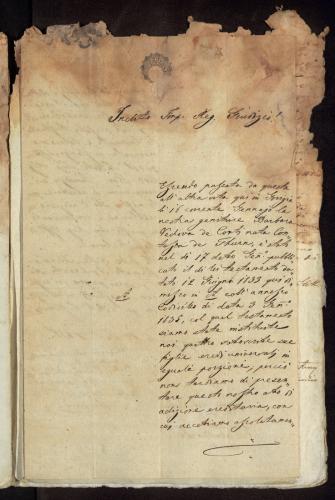 Inclito Imp. Reg. Giudizio!
Essendo passata da questa
all'altra vita qui in Gorizia
li 15 corrente Gennajo la
nostra genitrice Barbara
Vedova de Corte nata Con-
tessa de Thurn, è stato
nel dì 17 detto pubbli-
cato il di lei testamento da-
tato 12 Giugno 1833 qui di-
messo in coll'annesso
Codicillo di data 3
1835, col qual testamento
siamo state instituite
noi quattro sottoscritte sue
figlie eredi universali in
eguale porzione, perciò
non tardiamo di presen-
tare questo nostro atto di
adizione ereditaria, con
cui accettiamo